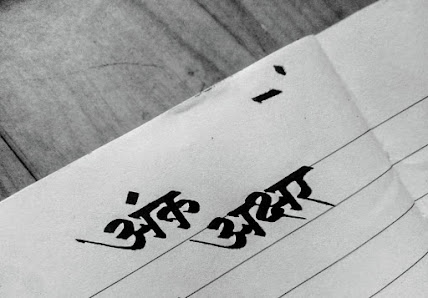 अंक अक्षर